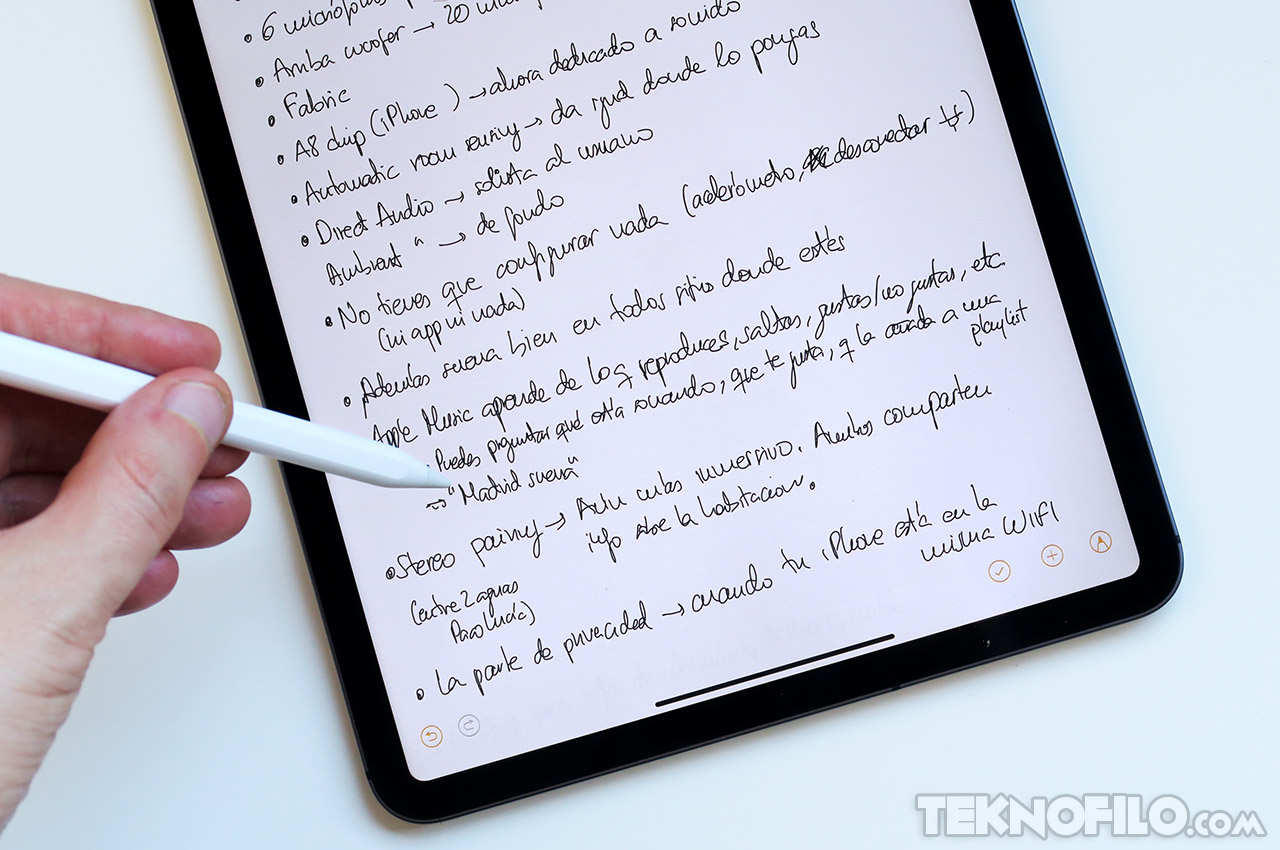 • 6 micrófonos
• Arriba woofer → 20 m
• Fabric
• A8 chip (iPhone ) → ahora dedicado a sonido
• Automatic room sensing → da igual donde lo pongas
• Direct Audio → solista al usuario
Ambient " → de fondo
• No tienes que configurar nada (acelerómetro, desconectar #)
(ni app ni nada)
• Además suena bien en todos sitios donde estés
Apple Music aprende de lo q reproduces, saltas, gustas/no gustas, etc.
Puedes preguntar qué está sonando, que te gusta, q la añada a una
playlist
→ "Madrid suena"
• Stereo pairing → Aún más inmersivo. Ambos comparten
info sobre la habitacion.
(entre 2 aguas
Paco Lucía)
• La parte de privacidad → cuando tu iPhone está en la
misma WIFI
TEKNOFILO.COM